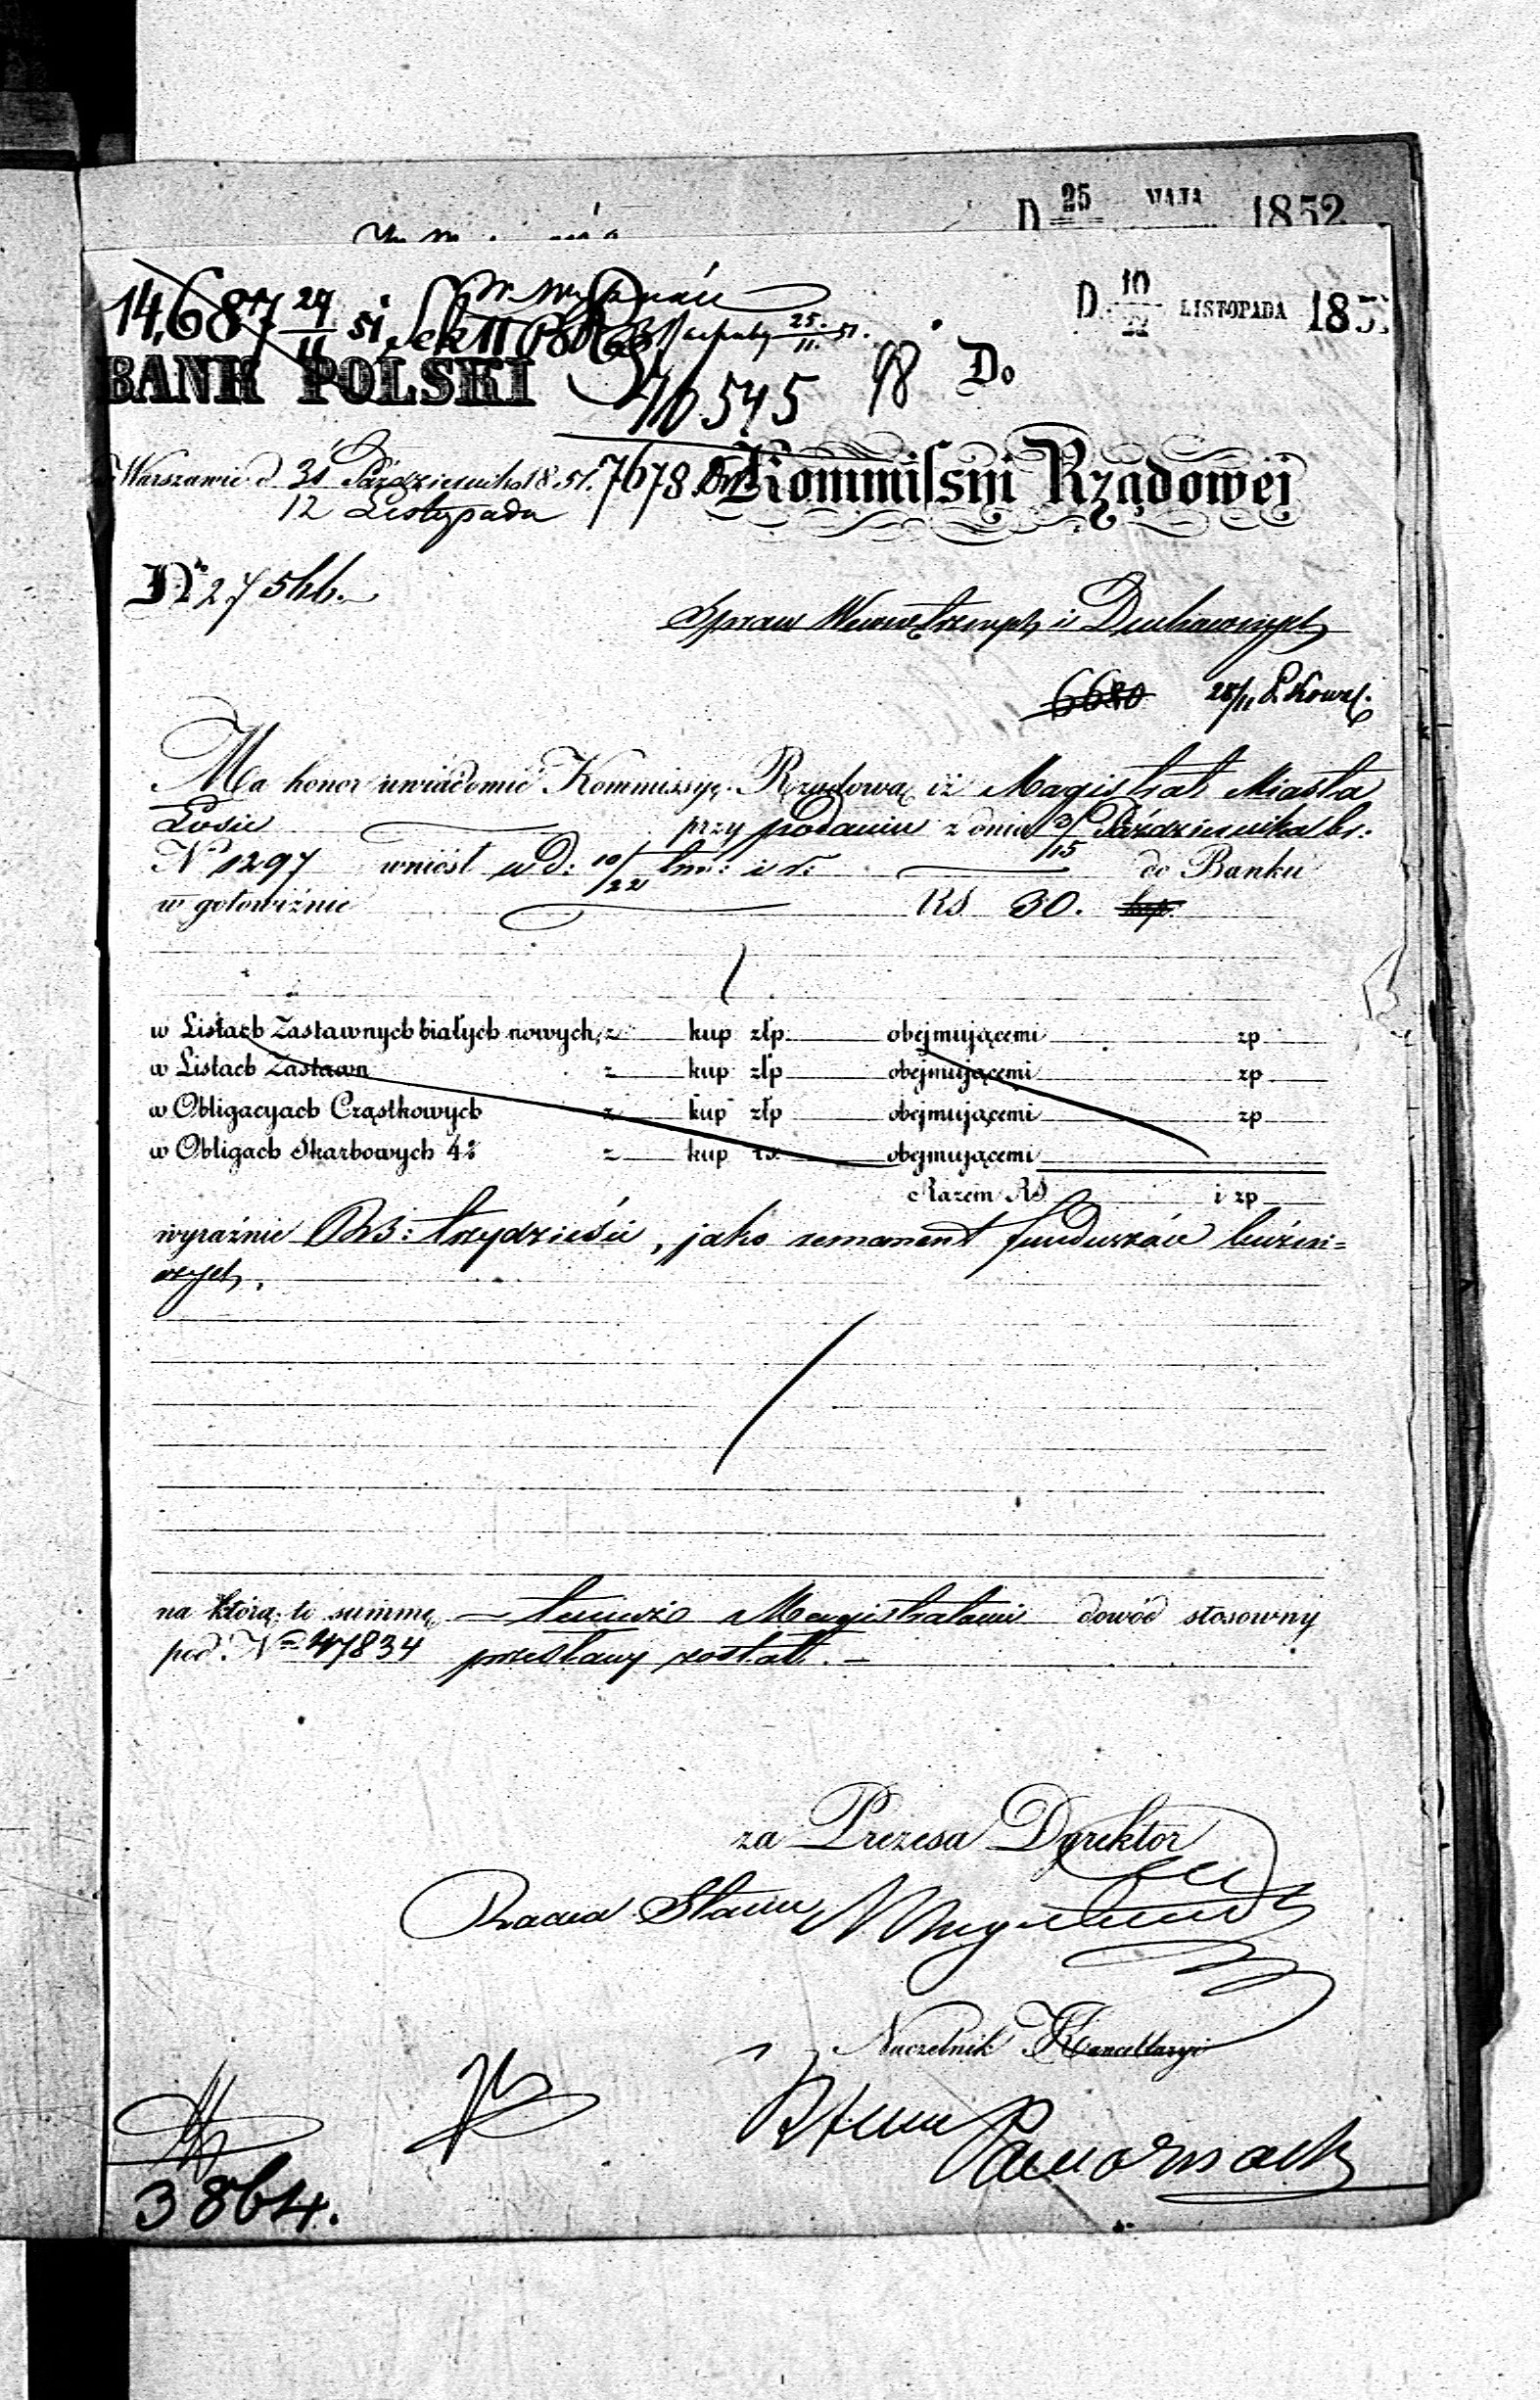 D 25 MAJA 1852
14,687 24/11 51 Sek II
D. 10/22 LISTOPADA 185
BANK POLSKI
10545
98
Do
w Warszawie d 31 Października 1851.
12 Listopada
7678
Kommissyi Rządowej
Nr 27566.
Spraw Wewnętrznych i Duchownych
6680 28/11 P. Kowal.
Ma honor uwiadomić Kommissyę Rządową iż Magistrat Miasta
Łosie przy podaniu z dnia 3/15 Października br:
No 1297 wniósł w d: 10/22 tm: i r: do Banku
w gotowiźnie RS 30. kop
w Listach Zastawnych białych nowych, z kup złp. obejmującemi zp
w Listach Zastawn z kup złp obejmującemi zp
w Obligacyach Cząstkowych z kup złp obejmującemi zp
w Obligach Skarbowych 4% z kup rs. obejmującemi
Razem RS i zp
wyraźnie RS: trzydzieści, jako remanent funduszów bóżni=
czych.
na którą to summę temuż Magistratowi dowód stosowny
pod No 47834 przesłany został. –
za Prezesa Dyrektor
Radca Stanu
Naczelnik Kancellaryi
3864.